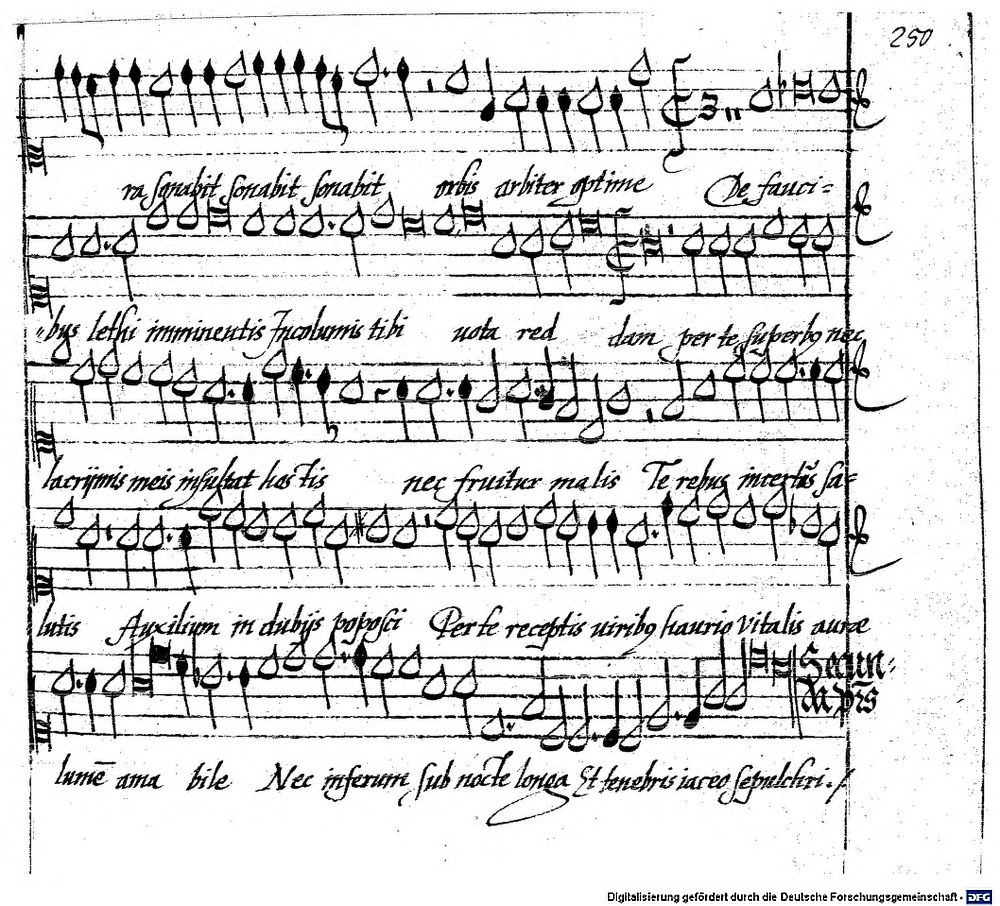 250
ra sonabit sonabit sonabit orbis arbiter optime De fauci=
bus lethi imminentis Incolumis tibi uota red dam per te superbo nec
lacrijmis meis insultat hostis nec fruitur malis Te rebus incertus sa=
lutis Auxilium in dubijs poposci Per te receptis uiribo haurio vitalis auræ
Secun=
da prs
lumē ama bile Nec inferum sub nocte longa Et tenebris iaceo sepulchri ./.
Digitalisierung gefördert durch die Deutsche Forschungsgemeinschaft - DFG